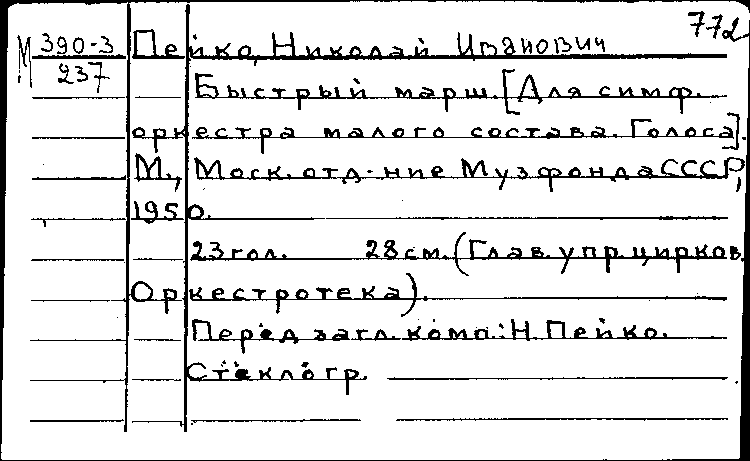 772
М 390-3 Пейко, Николай Иванович
237
Быстрый марш. [Для симф.
оркестра малого состава. Голоса].
М., Моск. отд-ние Музфонда СССР,
1950.
23 гол. 28 см. (Глав. упр. цирков.
Оркестротека).
Перед загл. комп.: Н. Пейко.
Стеклогр.